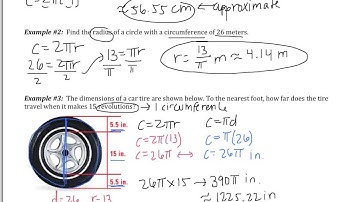 ≈ 56.55 cm ← approximate
Example #2: Find the radius of a circle with a circumference of 26 meters.
C = 2πr
26 = 2πr
2 2
13 = πr
π π
r = 13/π m ≈ 4.14 m
Example #3: The dimensions of a car tire are shown below. To the nearest foot, how far does the tire
travel when it makes 15 revolutions? → 1 circumference
5.5 in.
15 in.
5.5 in.
d = 26 r = 13
C = 2πr
C = 2π(13)
C = 26π
C = πd
C = π(26)
C = 26π in.
26π × 15 → 390π in.
≈ 1225.22 in